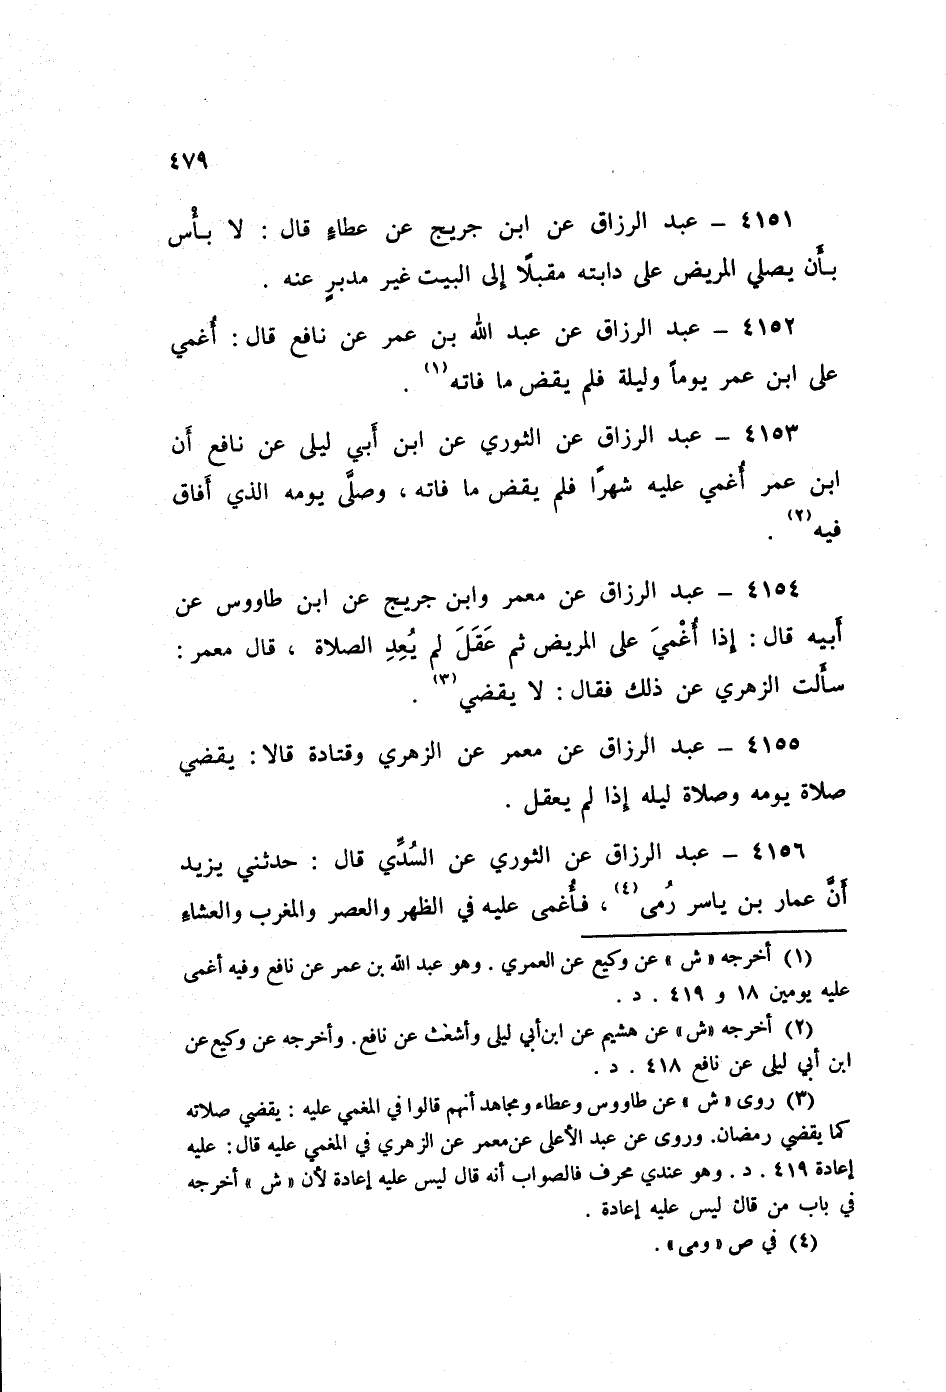 ٤٧٩
٤١٥١ – عبد الرزاق عن ابن جريج عن عطاءٍ قال : لا بأْس
بأَن يصلي المريض على دابته مقبلًا إلى البيت غير مدبرٍ عنه .
٤١٥٢ – عبد الرزاق عن عبد الله بن عمر عن نافع قال : أُغمي
على ابن عمر يوماً وليلة فلم يقض ما فاته (١) .
٤١٥٣ – عبد الرزاق عن الثوري عن ابن أَبي ليلى عن نافع أَن
ابن عمر أُغمي عليه شهرًا فلم يقض ما فاته ، وصلَّى يومه الذي أَفاق
فيه (٢) .
٤١٥٤ – عبد الرزاق عن معمر وابن جريج عن ابن طاووس عن
أَبيه قال : إذا أُغْميَ على المريض ثم عَقَلَ لم يُعِدِ الصلاة ، قال معمر :
سأَلت الزهري عن ذلك فقال : لا يقضي (٣) .
٤١٥٥ – عبد الرزاق عن معمر عن الزهري وقتادة قالا : يقضي
صلاة يومه وصلاة ليله إذا لم يعقل .
٤١٥٦ – عبد الرزاق عن الثوري عن السُدِّي قال : حدثني يزيد
أَنَّ عمار بن ياسر رُمى (٤) ، فأُغمى عليه في الظهر والعصر والمغرب والعشاء
(١) أخرجه «ش» عن وكيع عن العمري . وهو عبد الله بن عمر عن نافع وفيه أغمى
عليه يومين ١٨ و ٤١٩ . د .
(٢) أخرجه «ش» عن هشيم عن ابن أبي ليلى وأشعث عن نافع . وأخرجه عن وكيع عن
ابن أبي ليلى عن نافع ٤١٨ . د .
(٣) روى «ش» عن طاووس وعطاء ومجاهد أنهم قالوا في المغمي عليه : يقضي صلاته
كما يقضي رمضان. وروى عن عبد الأعلى عن معمر عن الزهري في المغمي عليه قال : عليه
إعادة ٤١٩ . د . وهو عندي محرف فالصواب أنه قال ليس عليه إعادة لأن «ش» أخرجه
في باب من قال ليس عليه إعادة .
(٤) في ص «ومى» .